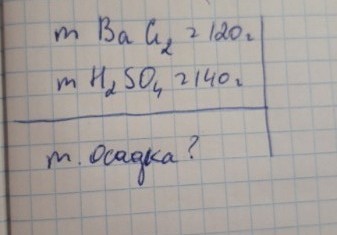 m BaCl₂ = 120г
m H₂SO₄ = 140г
m. осадка?